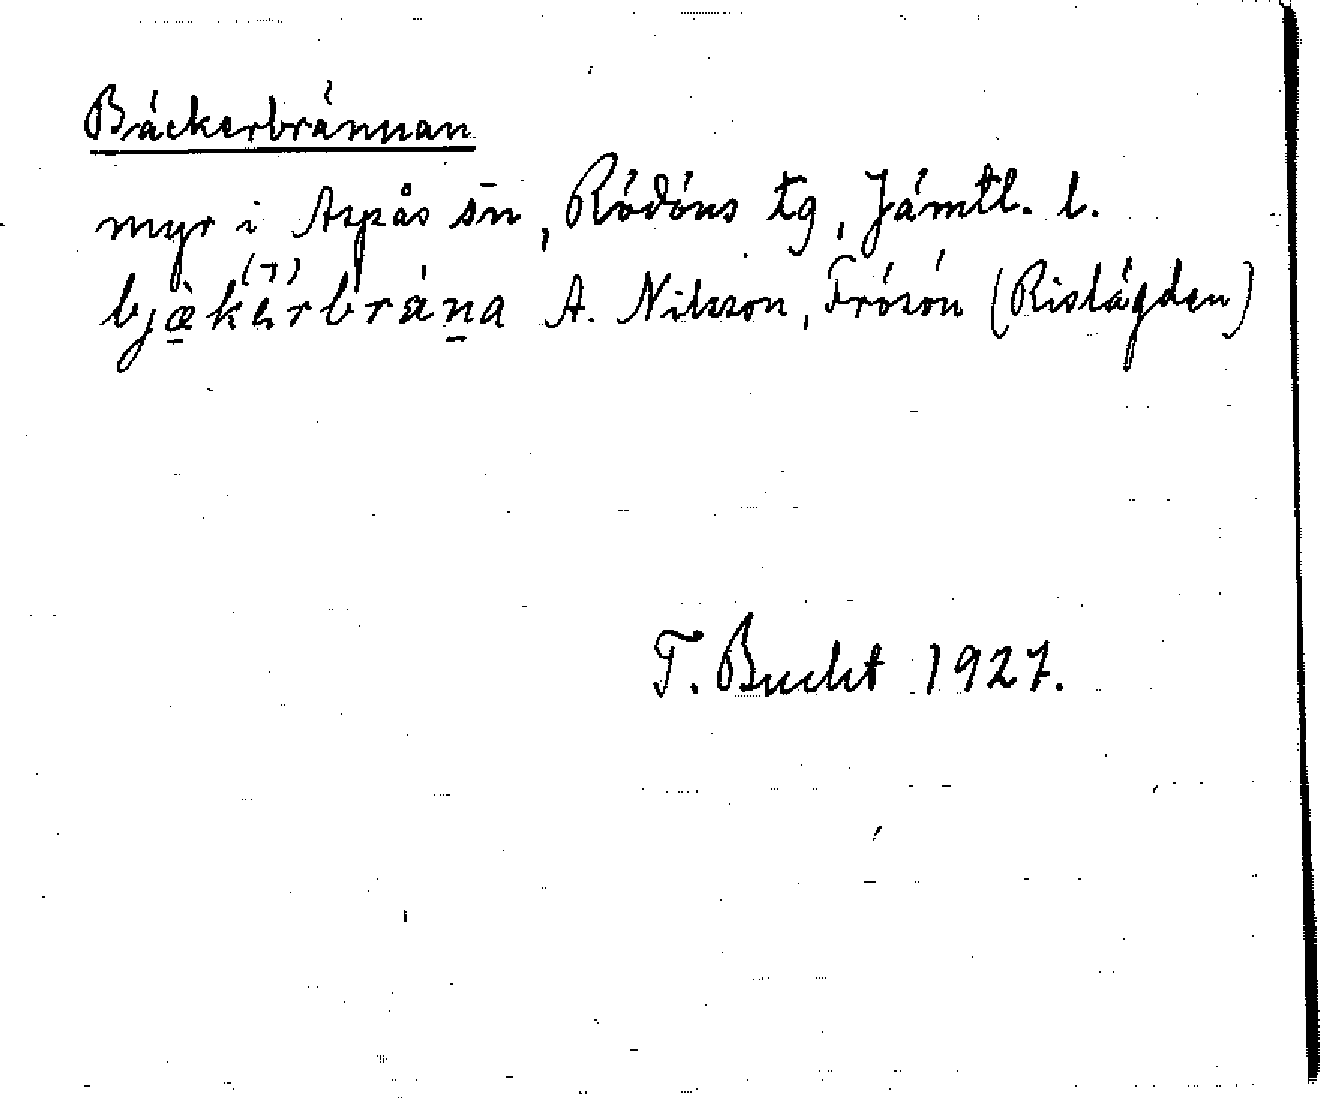 Bäckerbrännan
myr i Aspås sn, Rödöns tg, Jämtl. l.
bjækərbräna A. Nilsson, Frösön (Rislägden)
T. Bucht 1927.